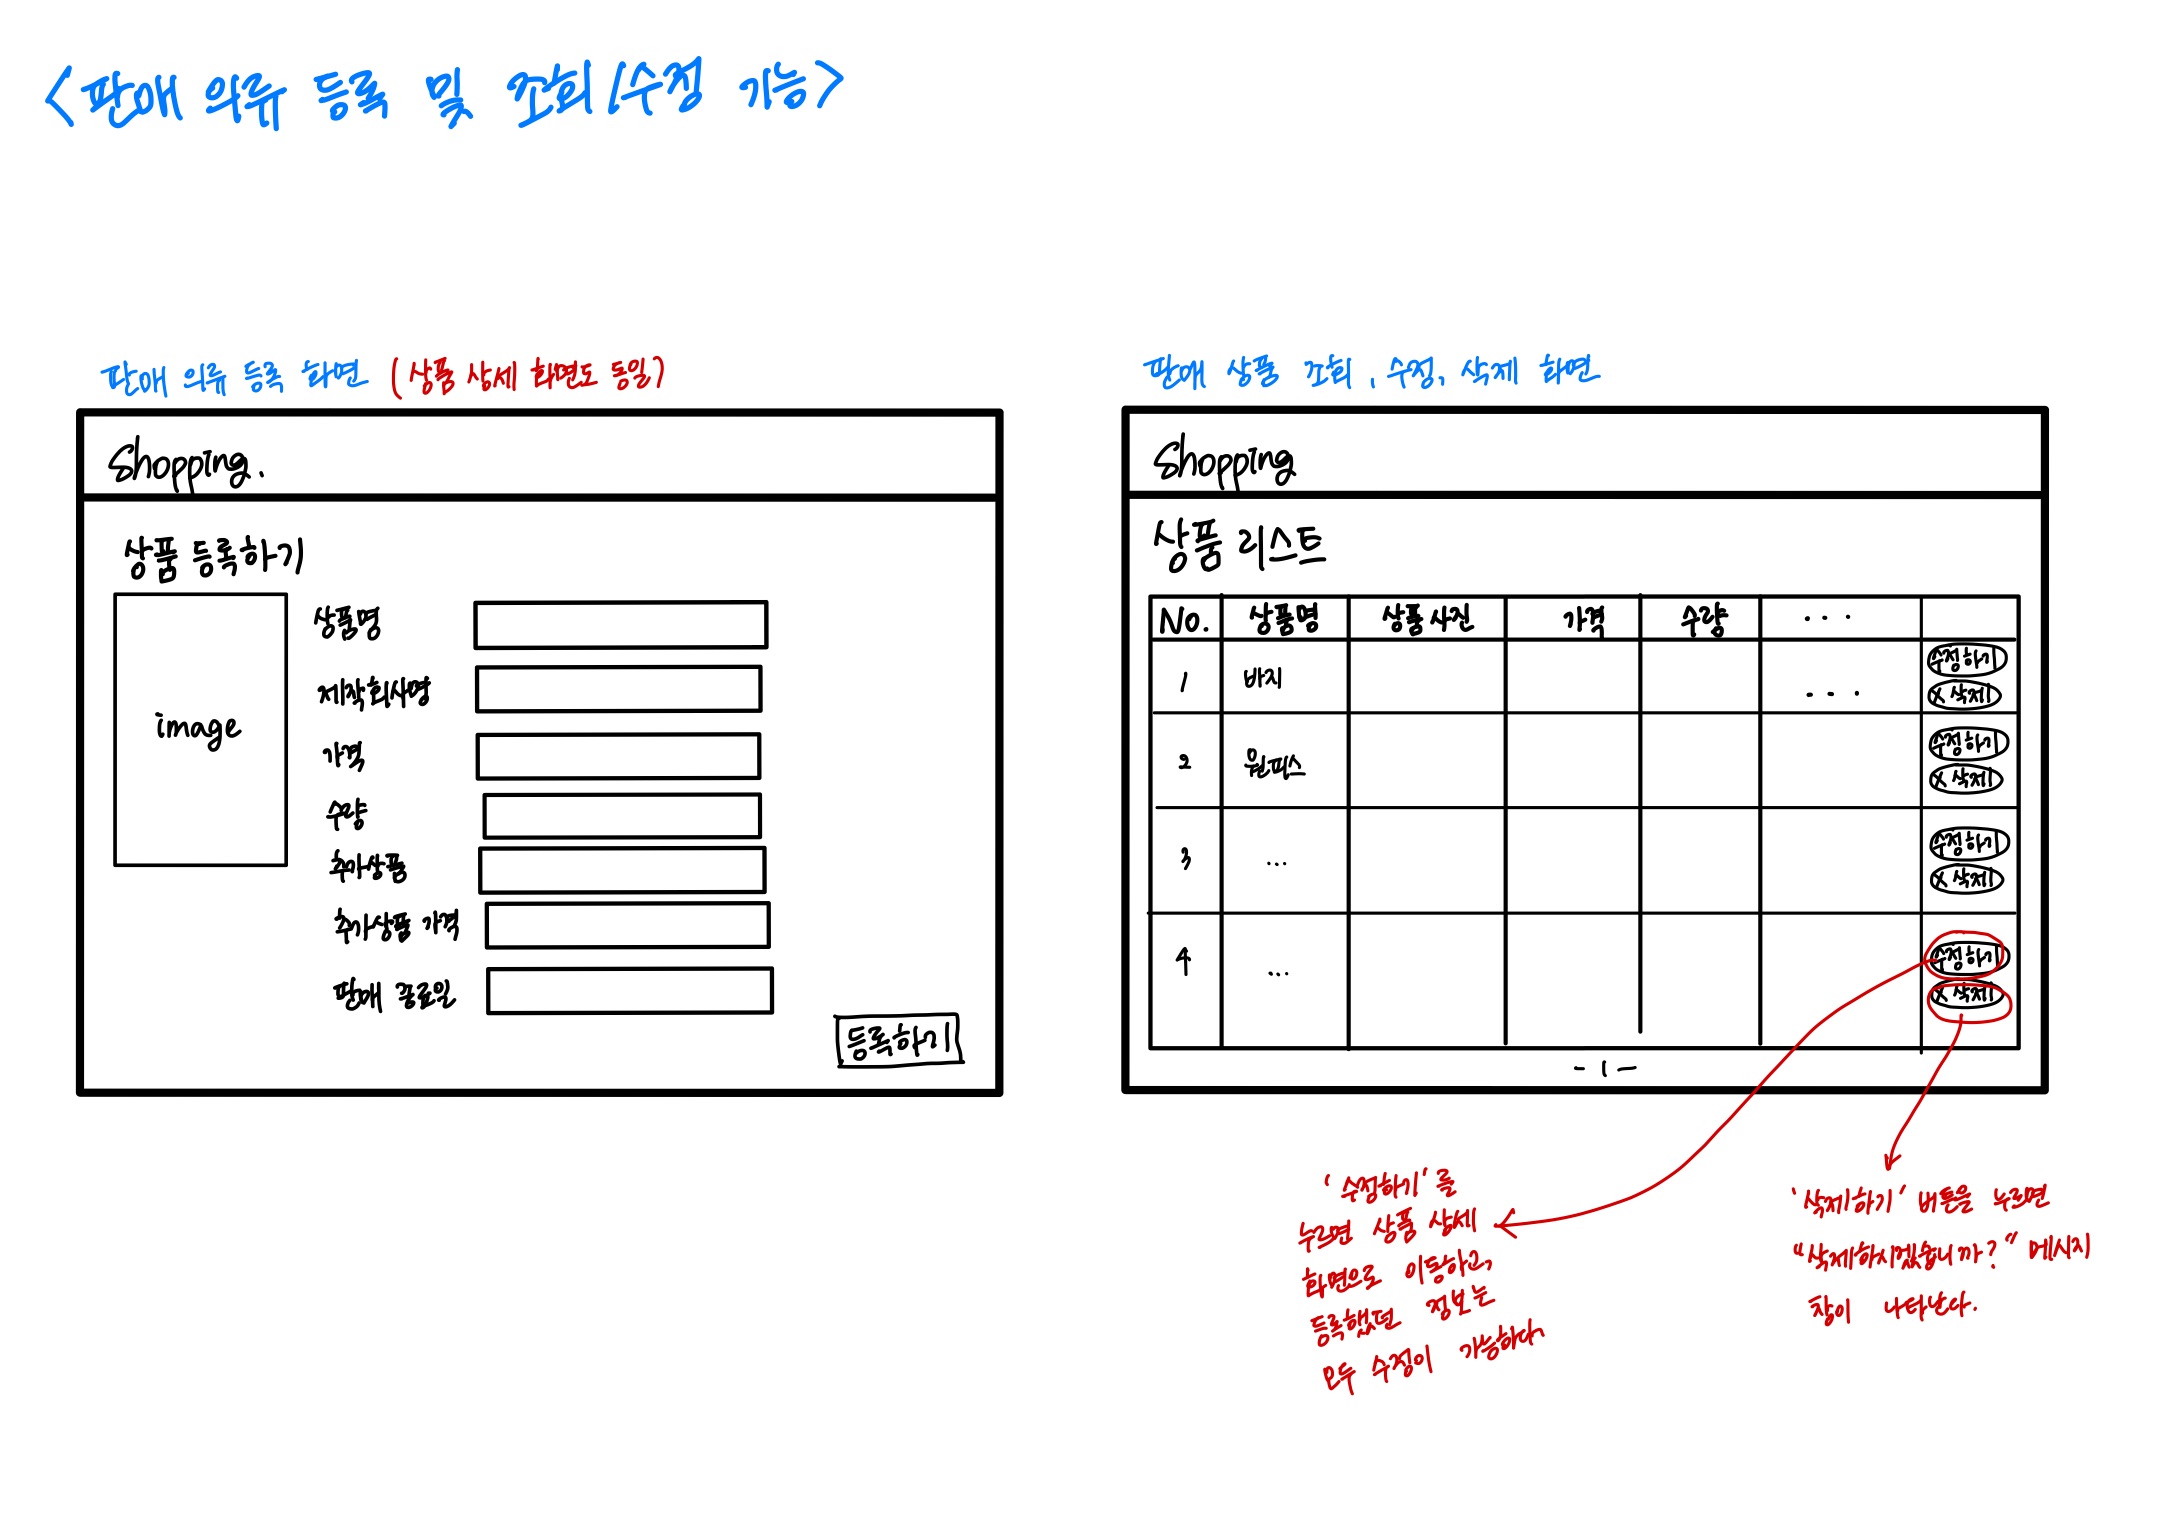 <판매 의류 등록 및 조회/수정 기능>
판매 의류 등록 화면 (상품 상세 화면도 동일)
Shopping.
상품 등록하기
image
상품명
제작회사명
가격
수량
추가상품
추가상품 가격
판매 종료일
등록하기
판매 상품 조회, 수정, 삭제 화면
Shopping
상품 리스트
No. 상품명 상품사진 가격 수량 ...
1 바지 ... 수정하기
X 삭제
2 원피스 수정하기
X 삭제
3 ... 수정하기
X 삭제
4 ... 수정하기
X 삭제
- 1 -
'수정하기'를
누르면 상품 상세
화면으로 이동하고,
등록했던 정보는
모두 수정이 가능하다
'삭제하기' 버튼을 누르면
"삭제하시겠습니까?" 메시지
창이 나타난다.